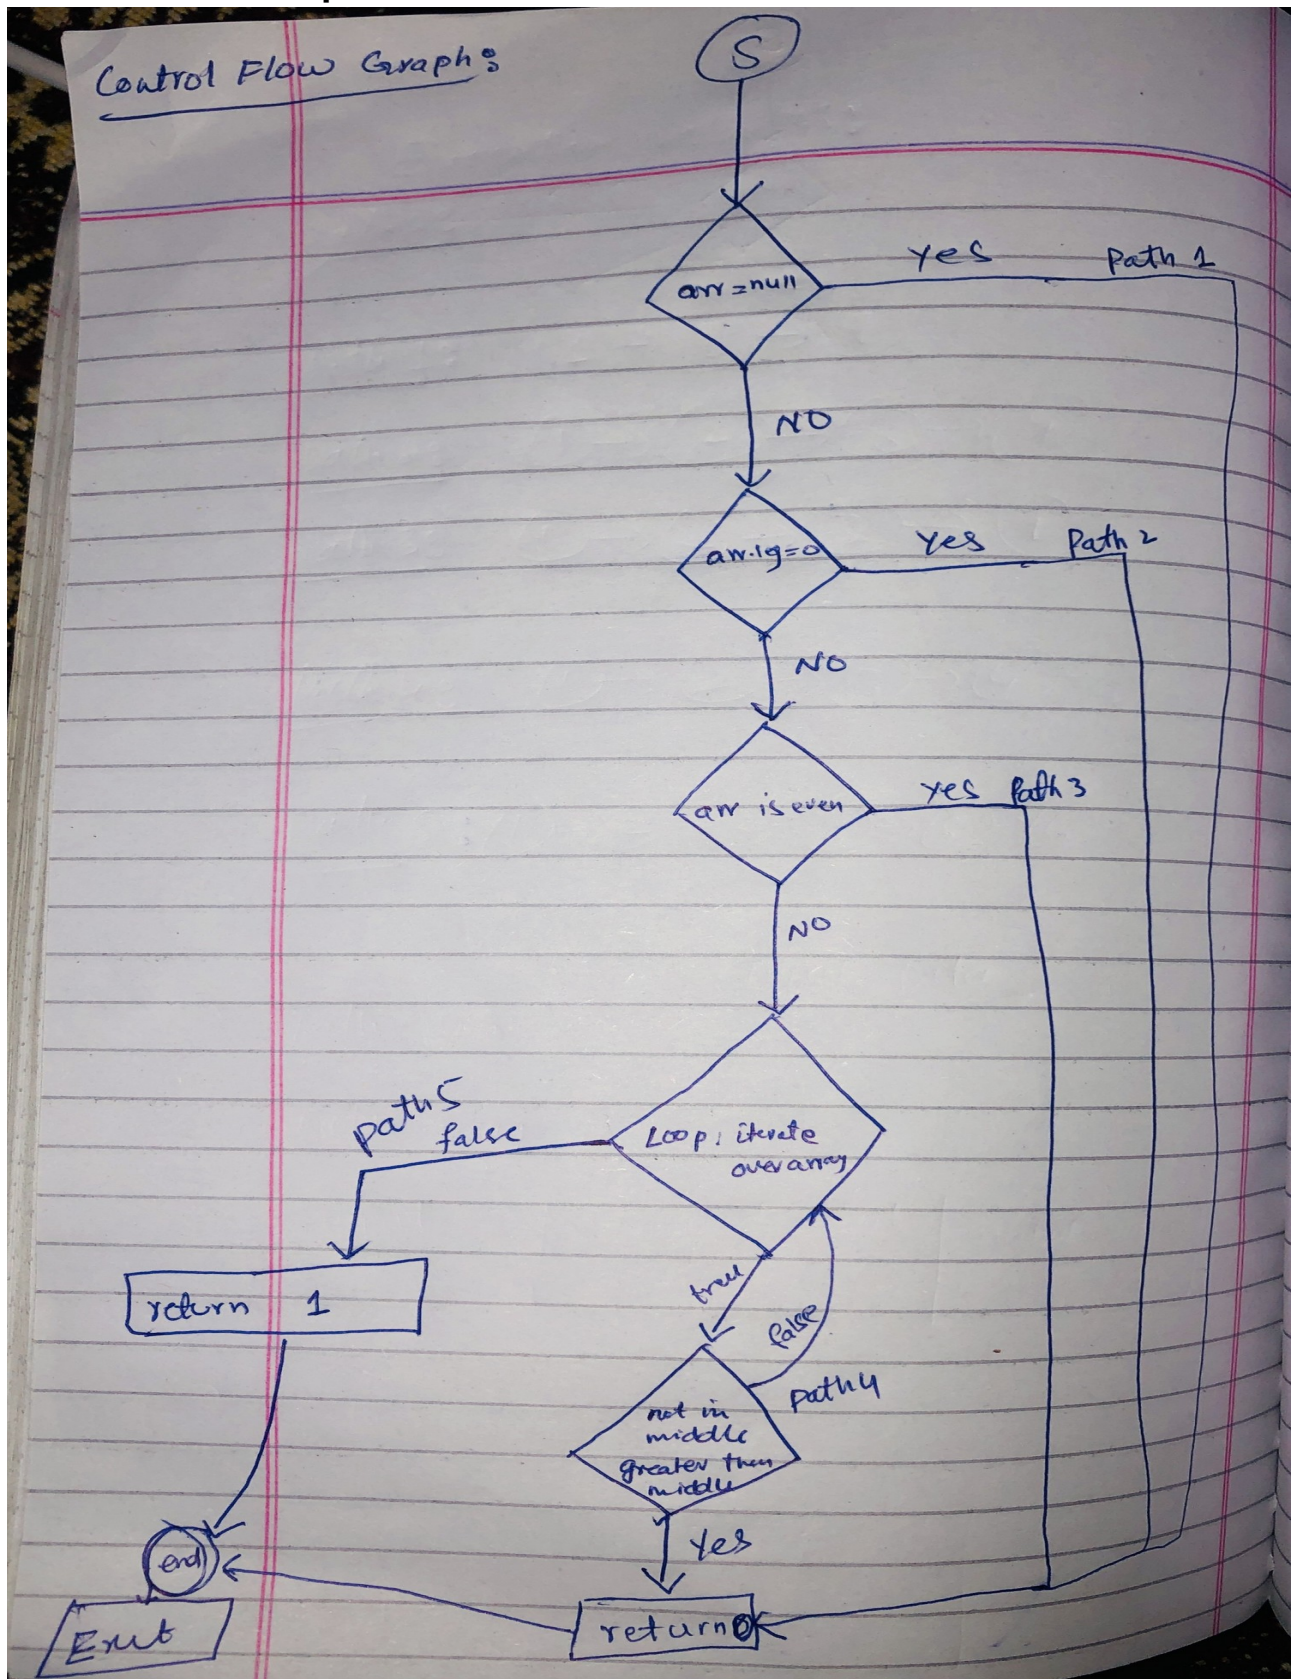 Control Flow Graph:
S
arr=null
yes
Path 1
NO
arr.lg=0
Yes
Path 2
NO
arr is even
yes Path 3
NO
Loop: iterate
over array
path 5
false
return 1
true
false
path 4
not in
middle
greater than
middle
Yes
end
return 0
Exit